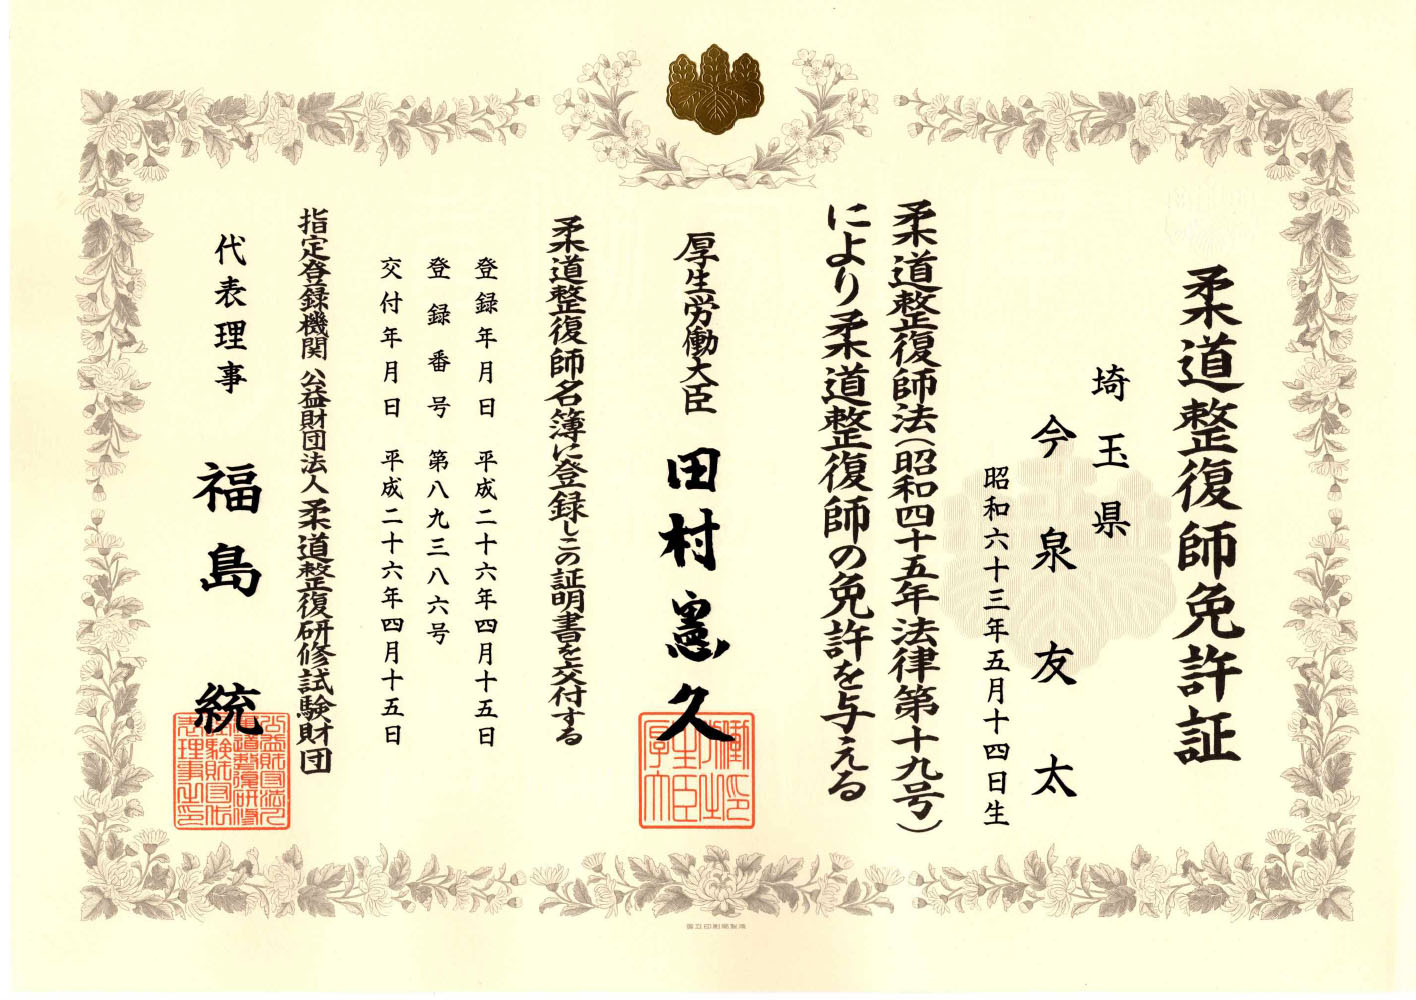 柔道整復師免許証
埼玉県
今泉友太
昭和六十三年五月十四日生
柔道整復師法(昭和四十五年法律第十九号)
により柔道整復師の免許を与える
厚生労働大臣 田村憲久
柔道整復師名簿に登録しこの証明書を交付する
登録年月日 平成二十六年四月十五日
登録番号 第八九三八六号
交付年月日 平成二十六年四月十五日
指定登録機関 公益財団法人柔道整復研修試験財団
代表理事 福島統
国立印刷局製造